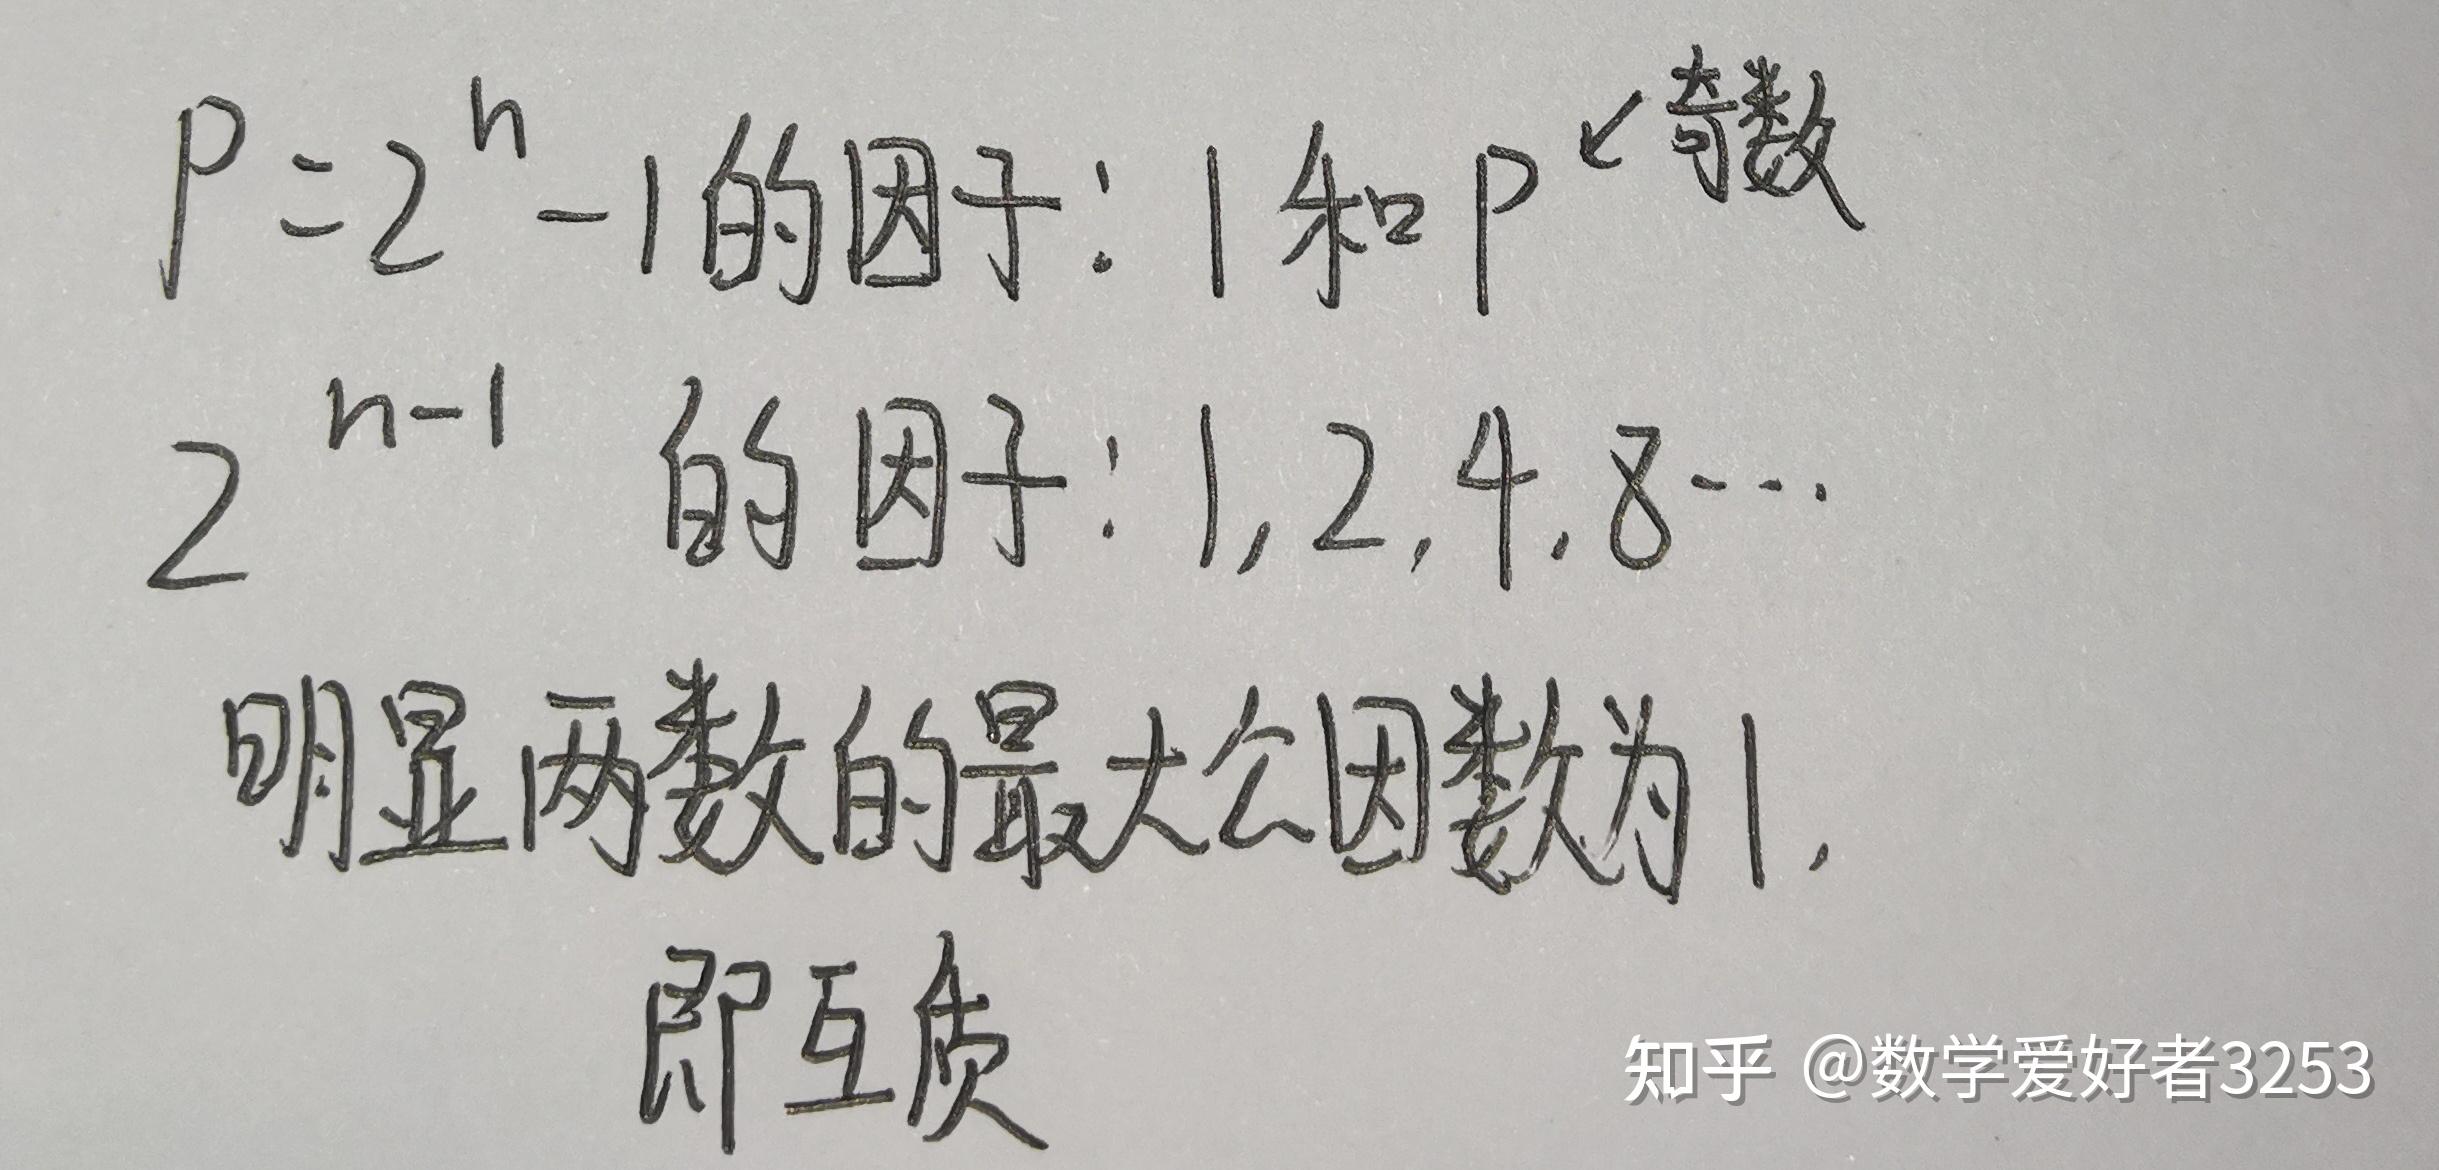 P=2^n-1的因子:1和P↙奇数
2^{n-1} 的因子:1,2,4,8…
明显两数的最大公因数为1,
即互质
知乎 @数学爱好者3253